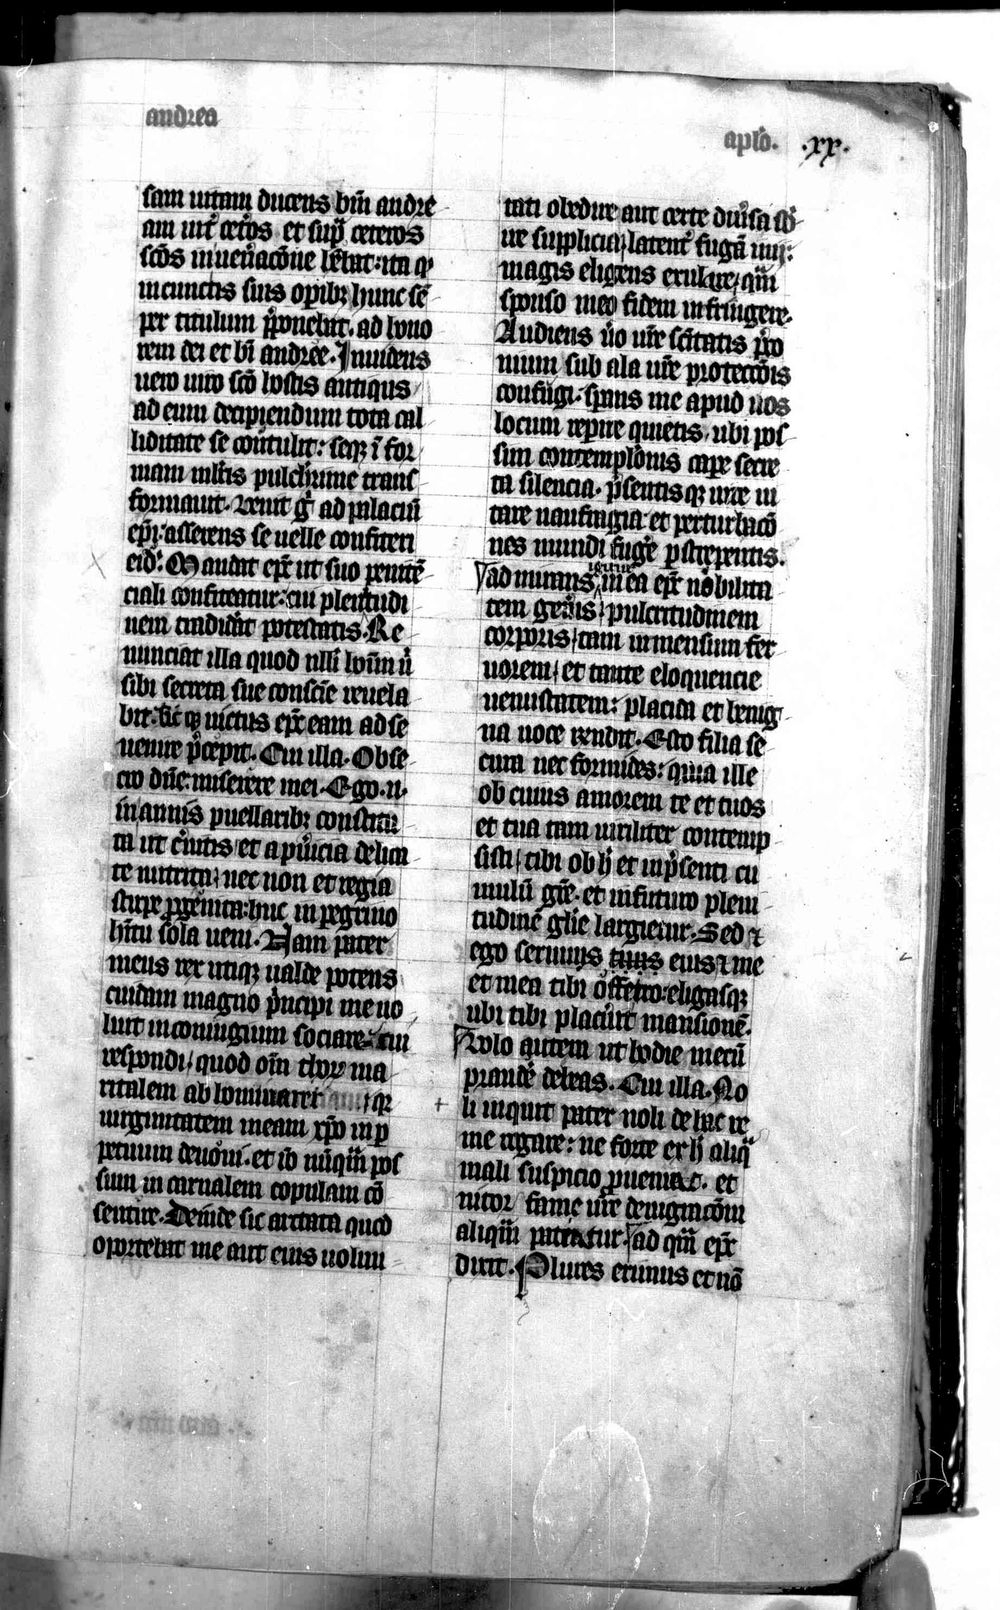 andrea
aplō. .xx.
sam uitam ducens bīn andre
am int̉ cet̉os et sup̄ ceteros
sc̄os in uen̉ac̄one h̄ebat: ita q
in cunctis suis op̄ibꝫ hunc sē
per titulum p̄ponebat. ad hono
rem dei et bī andree. Inuidens
uero uiro sc̄o hostis antiqus
ad eum decipiendum tota cal
liditate se contulit: seqꝫ ī for
mam ml̄ris pulcherrime trans
formauit. Venit ḡ ad palaciū
ep̄i: asserens se uelle confiteri
eid̄. Mandat ep̄c ut suo penitē
ciali confiteatur: cui plenitudi
nem tradid̉at potestatis. Re
nunciat illa quod nlli hoīm n̄
sibi secreta sue consc̄ie reuela
bit. Sic qꝫ uictus ep̄c eam ad se
uenire p̄cepit. Cui illa. Obse
cro dn̄e miserere mei. Ego .n.
in annis puellaribꝫ constitu
ta ut c̉nitis et a pủicia delica
te nutrita, nec non et regia
stirpe ꝓgenita: huc in pegrino
h̄itu sola ueni. Nam pater
meus rex utiqꝫ ualde potens
cuidam magno p̉ncipi me uo
luit in coniugium sociare. cui
respondi, quod om̄ thoꝝ ma
ritalem abhominaret, qꝫ
uirginitatem meam xp̄o in ꝑ
petuum deuoui. et iō nūq̄m pos
sum in carnalem copulam cō
sentire. Deinde sic artata quod
oportebat me aut eius uolun
tati obedire aut certe diủsa sb̄
ire supplicia, latent̉ fugā inij:
magis eligens exulare, q̄m
sponso meo fidem infringere.
Audiens ūo ur̄e sc̄itatis p̄co
nium sub ala ur̄e protecc̄ois
confugi. spans me apud uos
locum repire quietis, ubi pos
sim contemplōnis cape secre
ta silencia. p̄sentisqꝫ uite ui
tare naufragia: et perturbacō
nes mundi fug̉e pstrepentis.
Admirans igitur in ea ep̄c nobilita
tem gen̉is, pulcritudinem
corporis, tam inmensum fer
uorem, et tante eloquencie
uenustatem: placida et benig
na uoce rendit. Esto filia se
cura nec formides: quia ille
ob cuius amorem te et tuos
et tua tam uiriliter contemp
sisti, tibi ob h̄ et in p̄senti cu
mulū gr̄e. et in futuro pleni
tudinē glīe largietur. Sed ⁊
ego seruus tuus eius ⁊ me
et mea tibi offero: eligasqꝫ
ubi tibi placủit mansionē.
Volo autem ut hodie mecū
prand̉e debeas. Cui illa. No
li inquit pater noli de hac re
me rogare: ne forte ex h̄ aliq̄
mali suspicio ꝓueniat. et
nitor fame ur̄e denigrac̄om
aliq̄m patiatur. Ad q̄m ep̄c
dixit. Plures erimus et nō